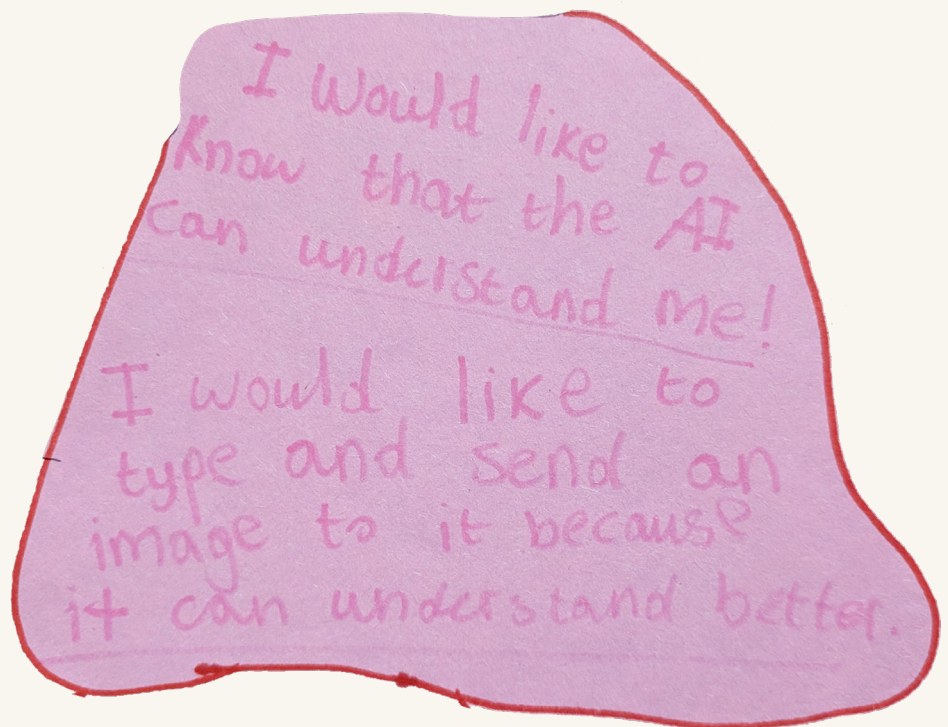 I would like to
know that the AI
can understand me!
I would like to
type and send an
image to it because
it can understand better.